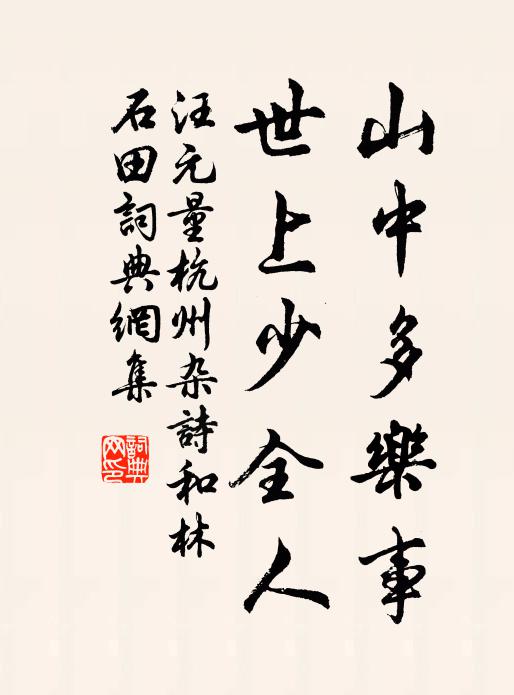 山中多樂事
世上少全人
汪元量杭州杂詩和林
石田詞典網集
詞典
网印